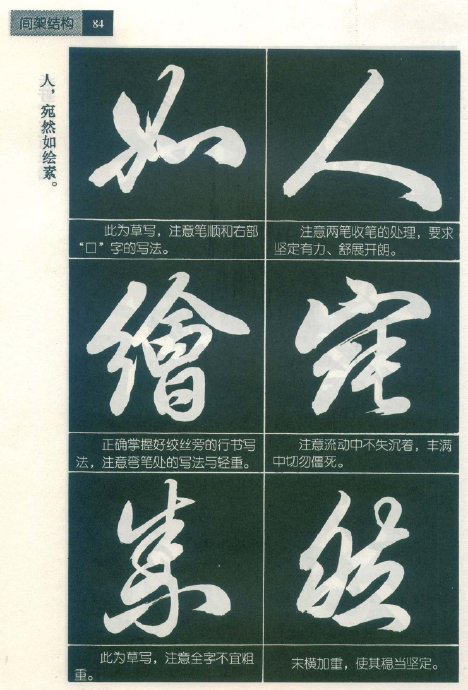 间架结构 84
人，宛然如绘素。
人
注意两笔收笔的处理，要求
坚定有力、舒展开朗。
宛
注意流动中不失沉着，丰满
中切勿僵死。
然
末横加重，使其稳当坚定。
如
此为草写，注意笔顺和右部
“口”字的写法。
繪
正确掌握好绞丝旁的行节写
法，注意弯笔处的写法与轻重。
素
此为草写，注意全字不宜粗
重。